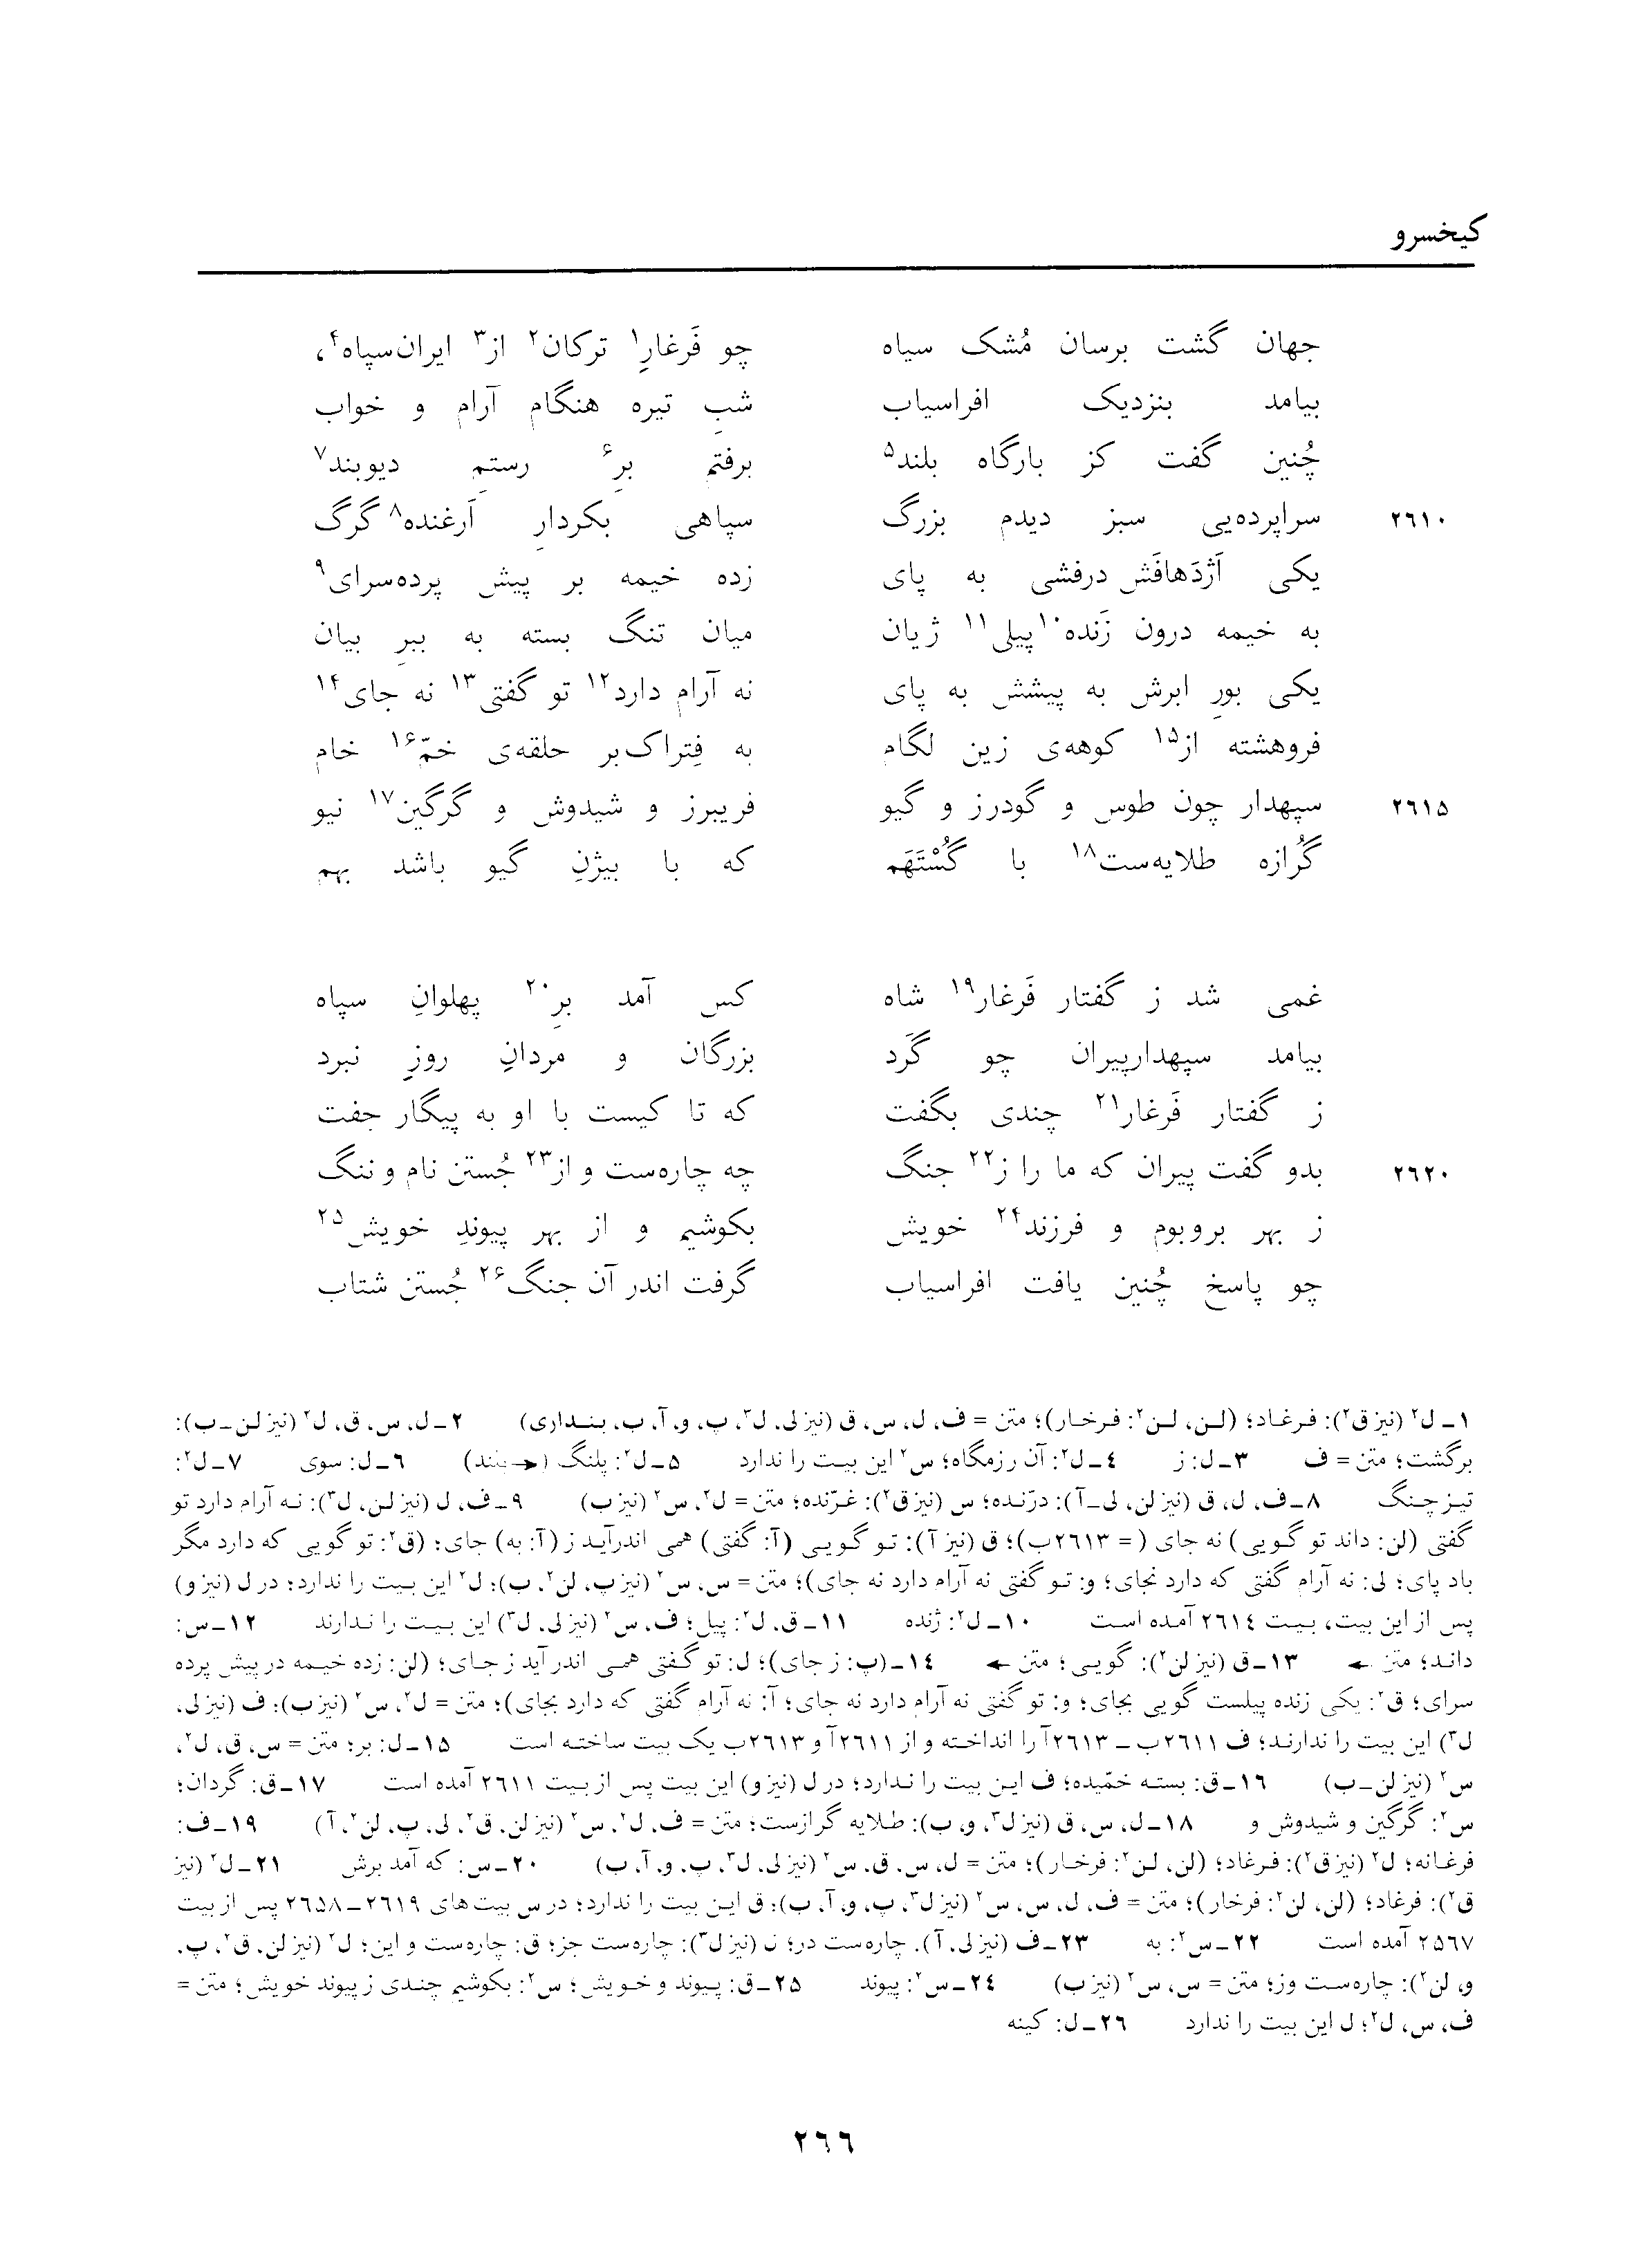 کیخسرو
جهان گشت برسان مُشک سیاه چو فَرغارِ¹ ترکان² از³ ایران‌سپاه⁴،
بیامد بنزدیک افراسیاب شبِ تیره هنگام آرام و خواب
چُنین گفت کز بارگاه بلند⁵ برفتم برِ⁶ رستمِ دیوبند⁷
۲۶۱۰ سراپرده‌یی سبز دیدم بزرگ سپاهی بکردارِ اَرغنده⁸ گرگ
یکی اَژدَهافَش درفشی به پای زده خیمه بر پیش پرده‌سرای⁹
به خیمه درون زَنده¹⁰ پیلی¹¹ ژیان میان تنگ بسته به ببرِ بیان
یکی بورِ ابرش به پیشش به پای نه آرام دارد¹² تو گفتی¹³ نه جای¹⁴
فروهشته از¹⁵ کوهه‌ی زین لگام به فِتراک‌بر حلقه‌ی خمّ¹⁶ خام
۲۶۱۵ سپهدار چون طوس و گودرز و گیو فریبرز و شیدوش و گرگین¹⁷ نیو
گُرازه طلایه‌ست¹⁸ با گُسْتَهَم که با بیژنِ گیو باشد بهم
غمی شد ز گفتار فَرغار¹⁹ شاه کس آمد برِ²⁰ پهلوانِ سپاه
بیامد سپهدارپیران چو گَرد بزرگان و مردانِ روزِ نبرد
ز گفتار فَرغار²¹ چندی بگفت که تا کیست با او به پیگار جفت
۲۶۲۰ بدو گفت پیران که ما را ز²² جنگ چه چاره‌ست و از²³ جُستن نام و ننگ
ز بهر بروبوم و فرزند²⁴ خویش بکوشیم و از بهر پیوندِ خویش²⁵
چو پاسخ چُنین یافت افراسیاب گرفت اندر آن جنگ²⁶ جُستن شتاب
۱ــ ل² (نیز ق²): فرغاد؛ (لن، لن²: فرخار)؛ متن = ف، ل، س، ق (نیز لی، ل³، پ، و، آ، ب، بنداری) ۲ــ ل، س، ق، ل² (نیز لن ــ ب):
برگشت؛ متن = ف ۳ــ ل: ز ٤ــ ل²: آن رزمگاه؛ س² این بیت را ندارد ۵ــ ل²: پلنگ (← بلند) ٦ــ ل: سوی ۷ــ ل²:
تیزچنگ ۸ــ ف، ل، ق (نیز لن، لی ــ آ): درّنده؛ س (نیز ق²): غرّنده؛ متن = ل²، س² (نیز ب) ۹ــ ف، ل (نیز لن، ل³): نه آرام دارد تو
گفتی (لن: داند تو گویی) نه جای ( = ۲۶۱۳ب)؛ ق (نیز آ): تو گویی (آ: گفتی) همی اندرآید ز (آ: به) جای؛ (ق²: تو گویی که دارد مگر
باد پای؛ لی: نه آرام گفتی که دارد نجای؛ و: تو گفتی نه آرام دارد نه جای)؛ متن = س، س² (نیز پ، لن²، ب)؛ ل² این بیت را ندارد؛ در ل (نیز و)
پس از این بیت، بیت ۲٦۱٤ آمده است ۱۰ــ ل²: ژنده ۱۱ــ ق، ل²: پیل؛ ف، س² (نیز لی، ل³) این بیت را ندارند ۱۲ــ س:
داند؛ متن ← ۱۳ــ ق (نیز لن²): گویی؛ متن ← ۱٤ــ (پ: ز جای)؛ ل: تو گفتی همی اندر آید ز جای؛ (لن: زده خیمه در پیش پرده
سرای؛ ق²: یکی زنده پیلست گویی بجای؛ و: تو گفتی نه آرام دارد نه جای؛ آ: نه آرام گفتی که دارد بجای)؛ متن = ل²، س² (نیز ب)؛ ف (نیز لی،
ل³) این بیت را ندارند؛ ف ۲٦۱۱ب ــ ۲٦۱۳آ را انداخته و از ۲٦۱۱آ و ۲٦۱۳ب یک بیت ساخته است ۱۵ــ ل: بر؛ متن = س، ق، ل²،
س² (نیز لن ــ ب) ۱٦ــ ق: بسته خمّیده؛ ف این بیت را ندارد؛ در ل (نیز و) این بیت پس از بیت ۲٦۱۱ آمده است ۱۷ــ ق: گردان؛
س²: گرگین و شیدوش و ۱۸ــ ل، س، ق (نیز ل³، و، ب): طلایه گرازست؛ متن = ف، ل²، س² (نیز لن، ق²، لی، پ، لن²، آ) ۱۹ــ ف:
فرغانه؛ ل² (نیز ق²): فرغاد؛ (لن، لن²: فرخار)؛ متن = ل، س، ق، س² (نیز لی، ل³، پ، و، آ، ب) ۲۰ــ س: که آمد برش ۲۱ــ ل² (نیز
ق²): فرغاد؛ (لن، لن²: فرخار)؛ متن = ف، ل، س، س² (نیز ل³، پ، و، آ، ب)؛ ق این بیت را ندارد؛ در س بیت‌های ۲٦۱۹ــ۲٦۵۸ پس از بیت
۲۵٦۷ آمده است ۲۲ــ س²: به ۲۳ــ ف (نیز لی، آ). چاره‌ست در؛ ل (نیز ل³): چاره‌ست جز؛ ق: چاره‌ست و این؛ ل² (نیز لن، ق²، پ،
و، لن²): چاره‌ست وز؛ متن = س، س² (نیز ب) ۲٤ــ س²: پیوند ۲۵ــ ق: پیوند و خویش؛ س²: بکوشیم چندی ز پیوند خویش؛ متن =
ف، س، ل²؛ ل این بیت را ندارد ۲٦ــ ل: کینه
۲٦٦